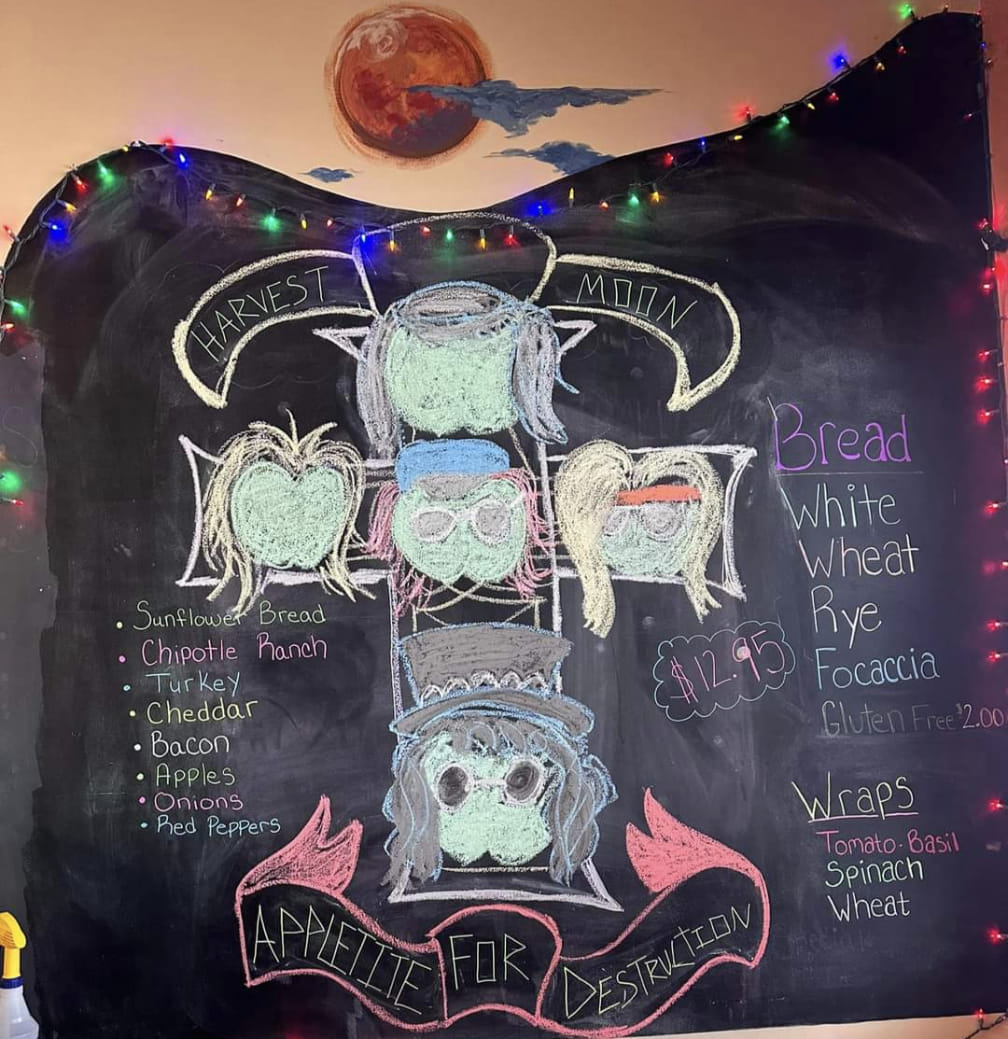 HARVEST MOON
Sunflower Bread
Chipotle Ranch
Turkey
Cheddar
Bacon
Apples
Onions
Red Peppers
$12.95
Bread
White
Wheat
Rye
Focaccia
Gluten Free $2.00
Wraps
Tomato-Basil
Spinach
Wheat
APPLETITE FOR DESTRUCTION